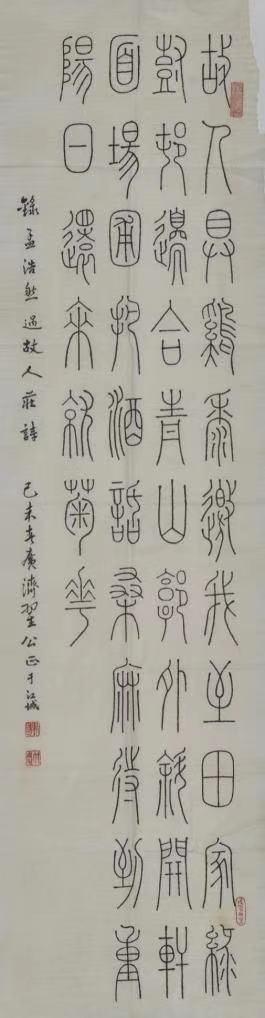 故人具雞黍邀我至田家綠
樹邨邊合青山郭外斜開軒
面場圃把酒話桑麻待到重
陽日還來就菊花
錄孟浩然過故人莊詩 己未春廣濟公正于江城